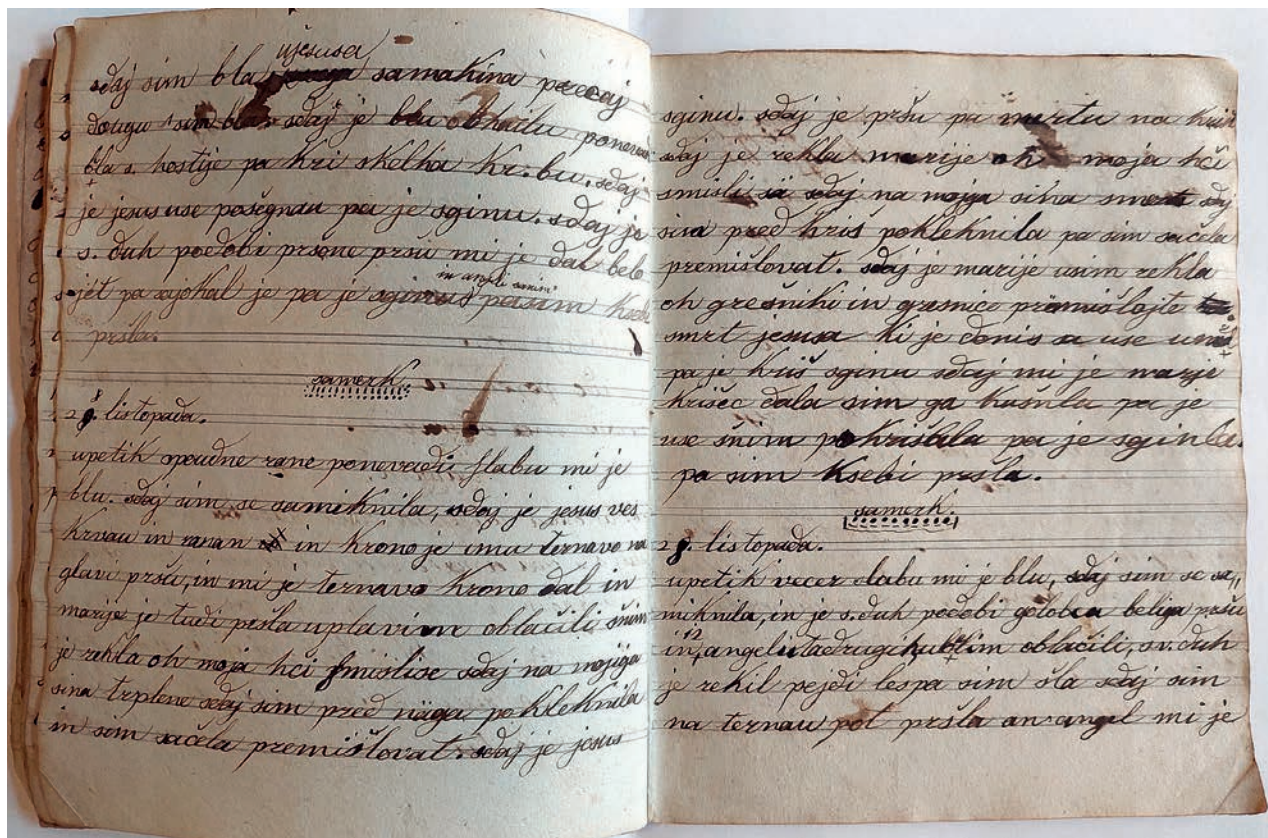 ujesusa
sdaj sim bla samaknna precaj
dougu sim bla. sdaj je blu obhailu ponevad
bla s. hostije pa kri skelha kr. bu. sdaj
je jesus use posegnau pa je sginu. sdaj je
s. duh podobi prsone pršu mi je dal belo
in angeli snim
pa je sginus pa sim ksebi
pršla.
samerk.
28. listopada.
upetik opoudne rane ponevadi slabu mi je
blu. sdaj sim se samiknila, sdaj je jesus ves
krvau in ranan in krono je imu ternavo na
glavi pršu, in mi je ternavo krono dal in
marije je tudi pršla uplavim oblačili snim
je rekla oh moja hči smislise sdaj na mojiga
sina trplene sdaj sim pred näga pokleknila
in sim sačela premišlovat. sdaj je jesus
sginu. sdaj je pršu pa murtu na kriš
sdaj je rekla marije oh moja hči
smisli sä sdaj na mojga sina smert sdaj
sim pred kris pokleknila pa sim sačela
premišlovat. sdaj je marije usim rekla
oh grešniki in grasnice prämišlojte
smrt jesusa ki je donis sa use umrl
pa je kriš sginu sdaj mi je marije
krišec dala sim ga kusnila pa je
use šnim pokrišala pa je sginila.
pa sim ksebi pršla.
samerk.
28. listopada.
upetik vecer slabu mi je blu, sdaj sim se sa„
miknila, in je s. duh podobi goloba beliga pršu
12
in angelu tadrugih ublim oblačili, sv. duh
je rekil pejdi lespa sim šla sdaj sim
na ternau pot pršla an angel mi je